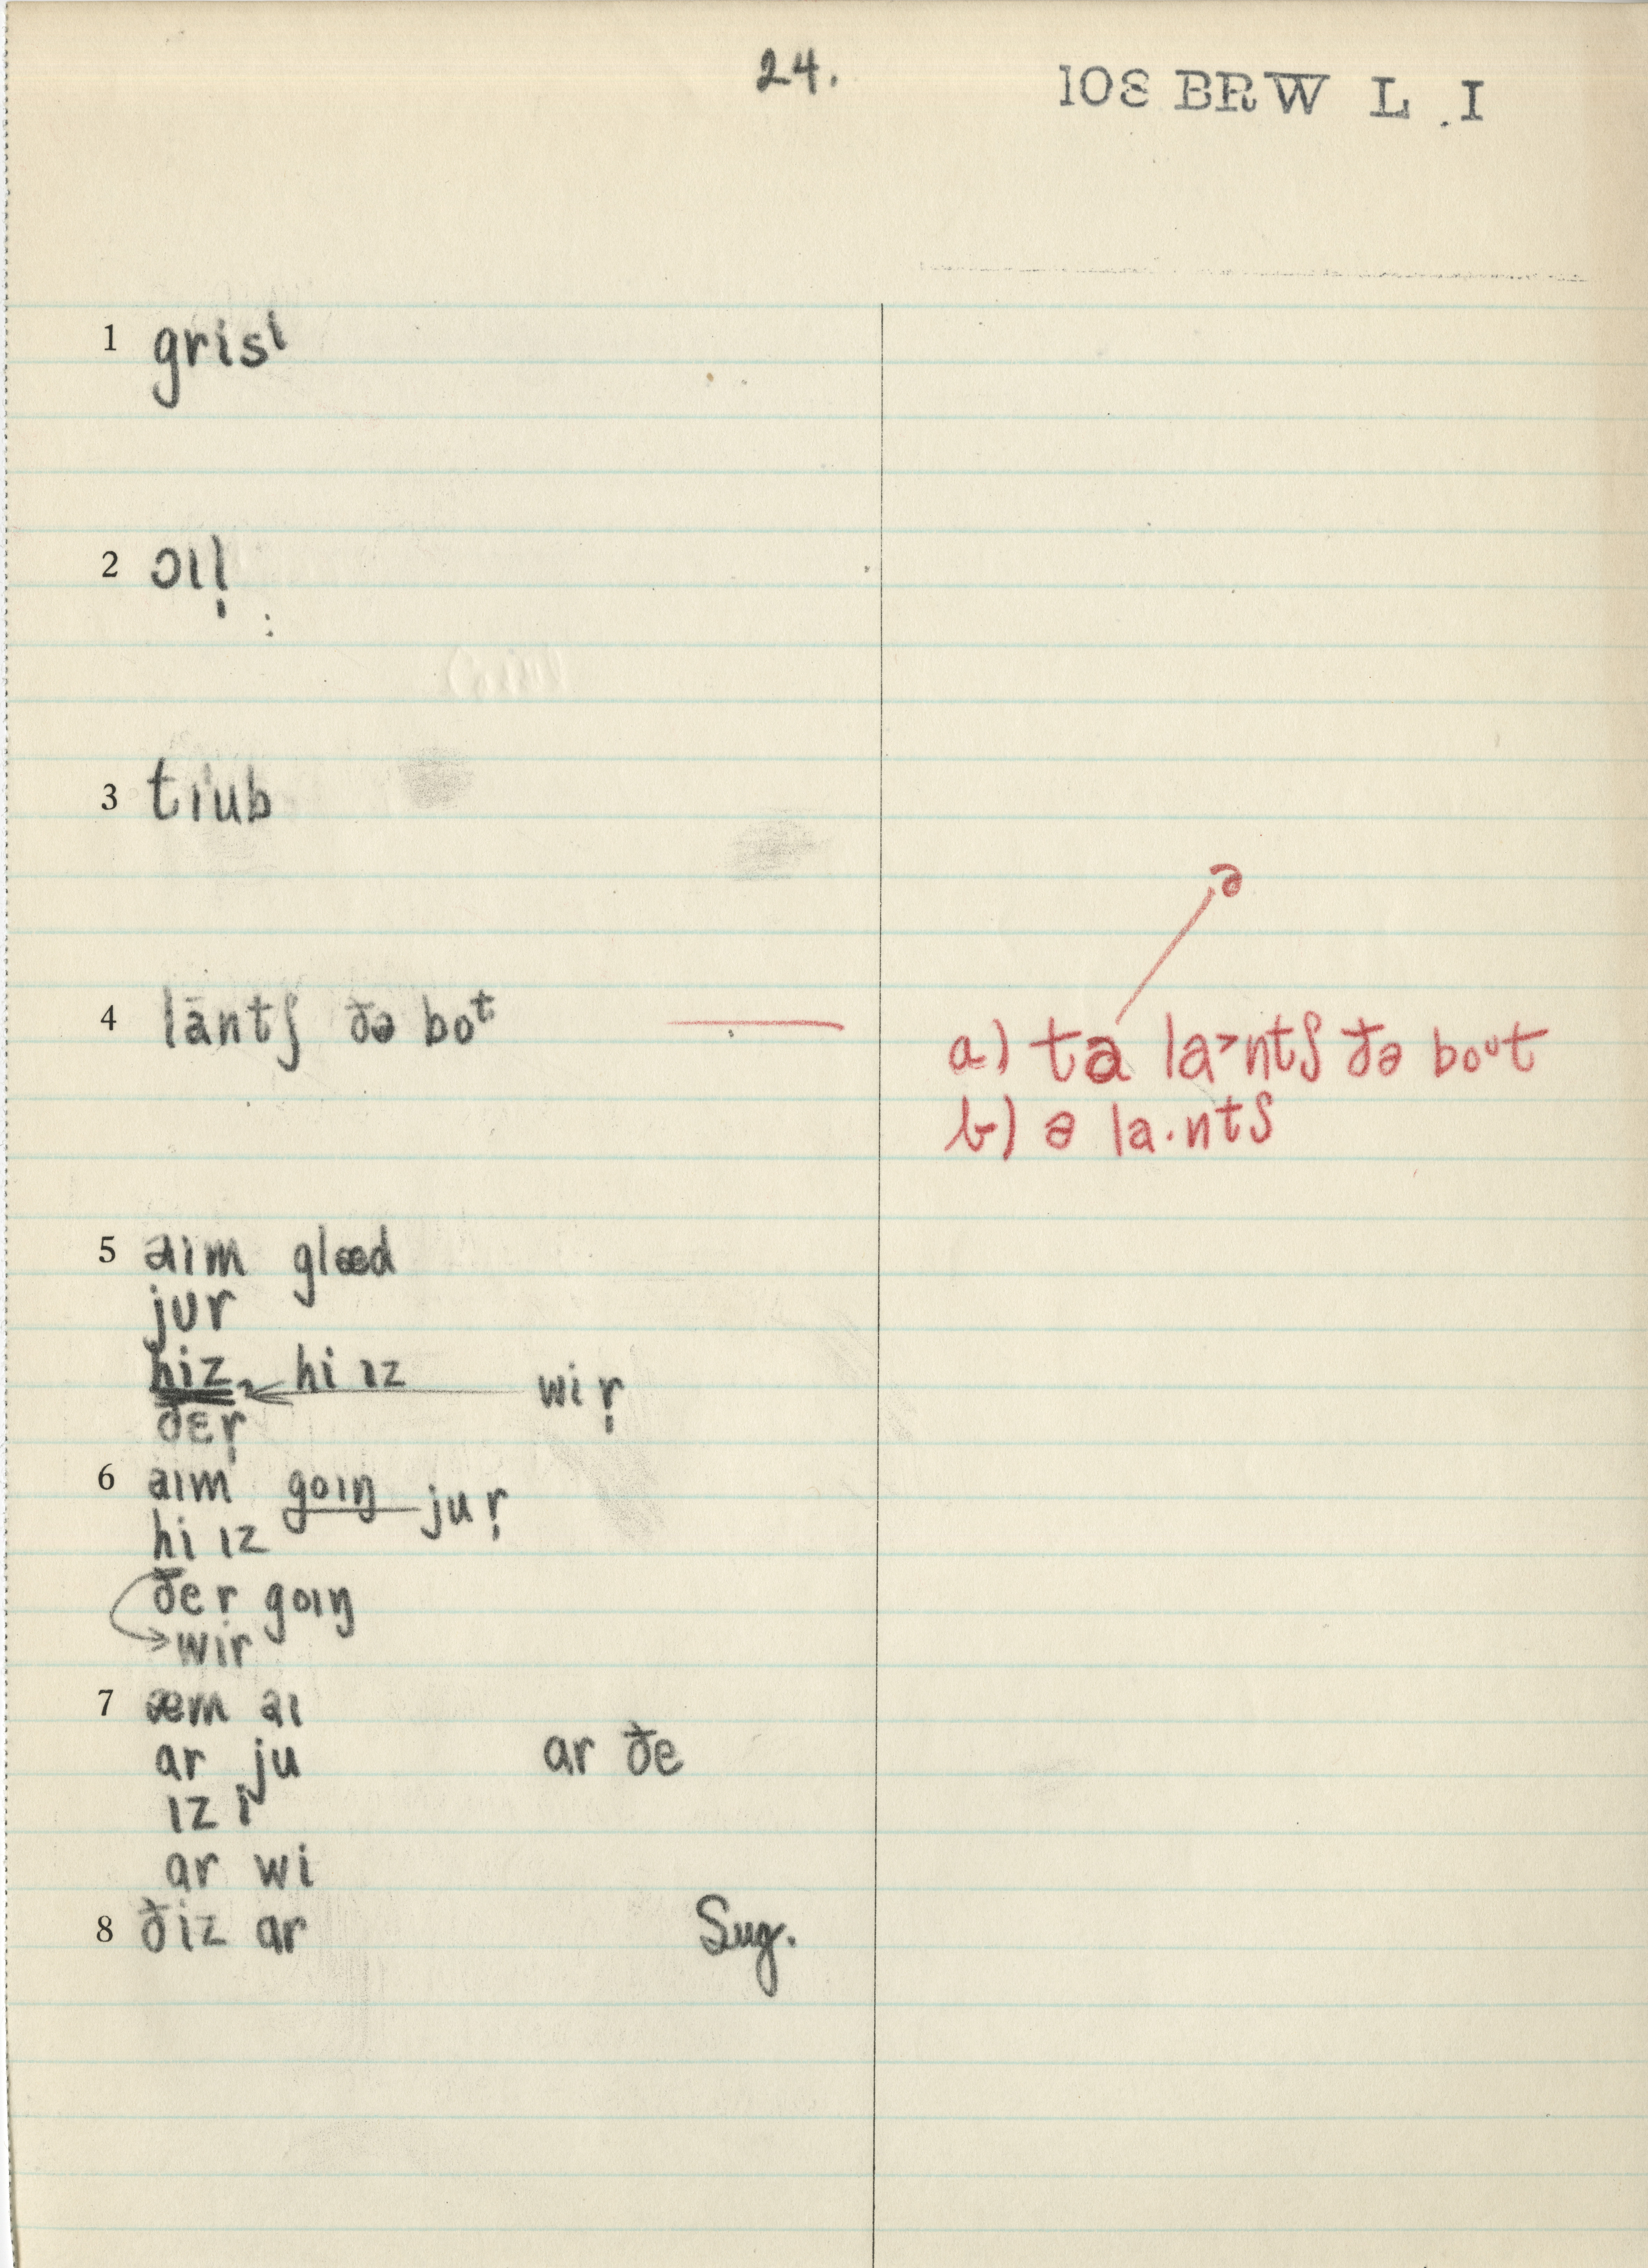 24.
108 BRW L. I
1 grisᶦ
2 ɔɪl̩
3 tiub
ə
4 lāntʃ ðə boᵗ
a) ta la˃ntʃ ðə boᶷt
b) ə la·ntʃ
5 aɪm glæd
jur
hiz hi ɪz wiṛ
ðɛṛ
6 aɪm goɪŋ juṛ
hi ɪz
ðer goɪŋ
wir
7 æm aɪ
ar ju ar ðe
ɪz i
ar wi
8 ðiz ar Sug.